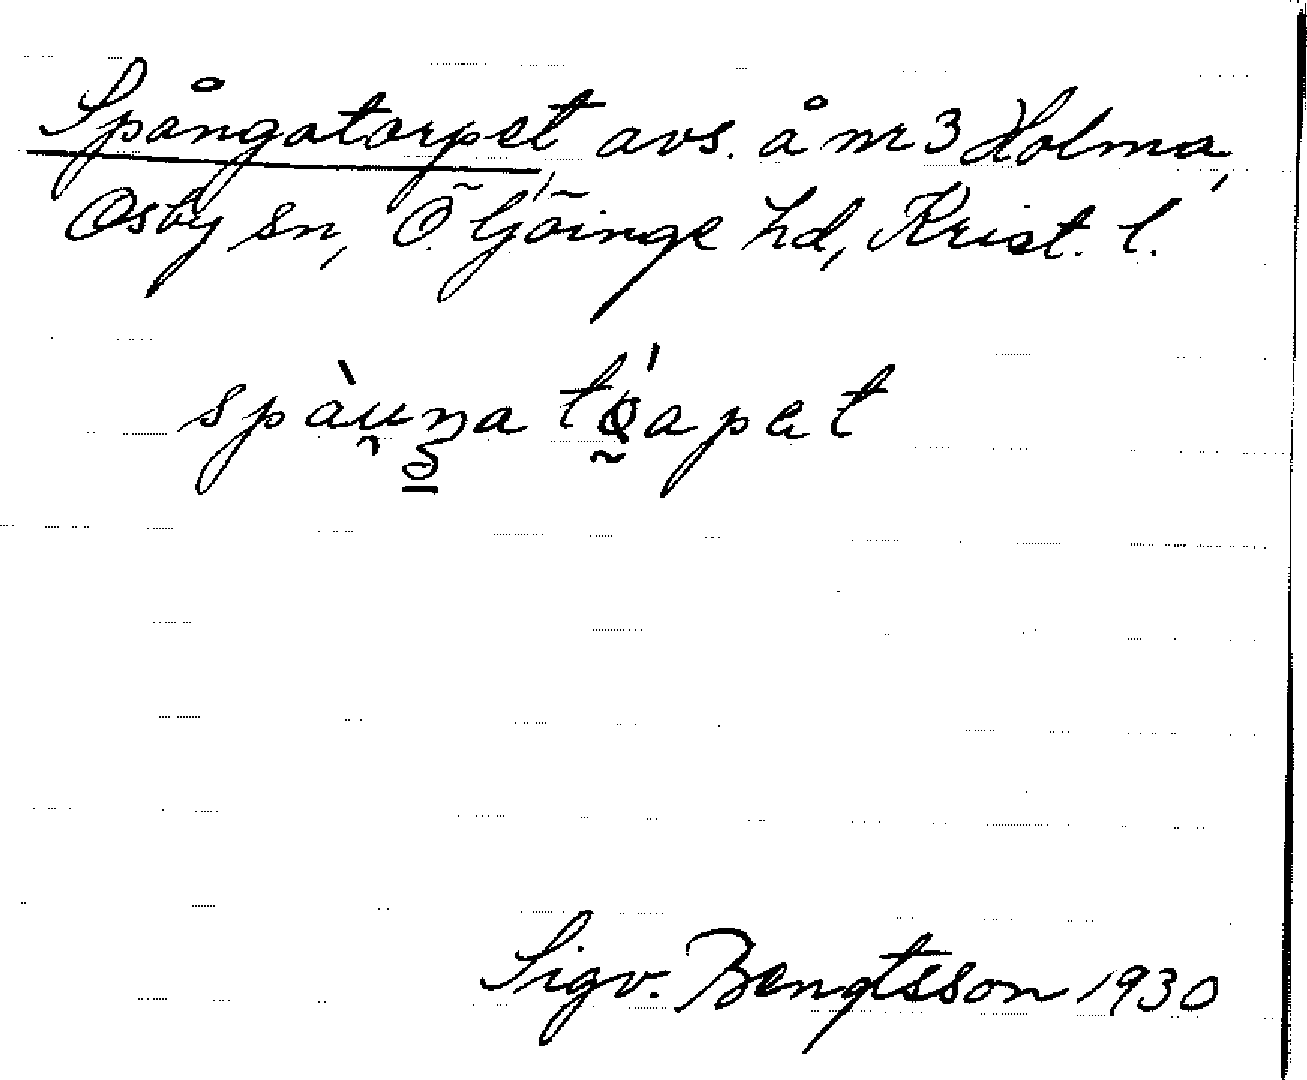 Spångatorpet, avs. å nr 3 Holma,
Osby sn, Ö. Göinge hd, Krist. l.
Sigv. Bengtsson 1930